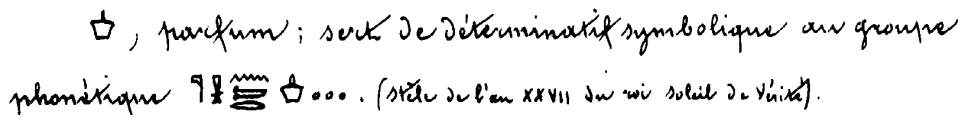 , parfum ; sert de déterminatif symbolique au groupe
phonétique ... (stèle de l'an XXVII du roi soleil de vérité).